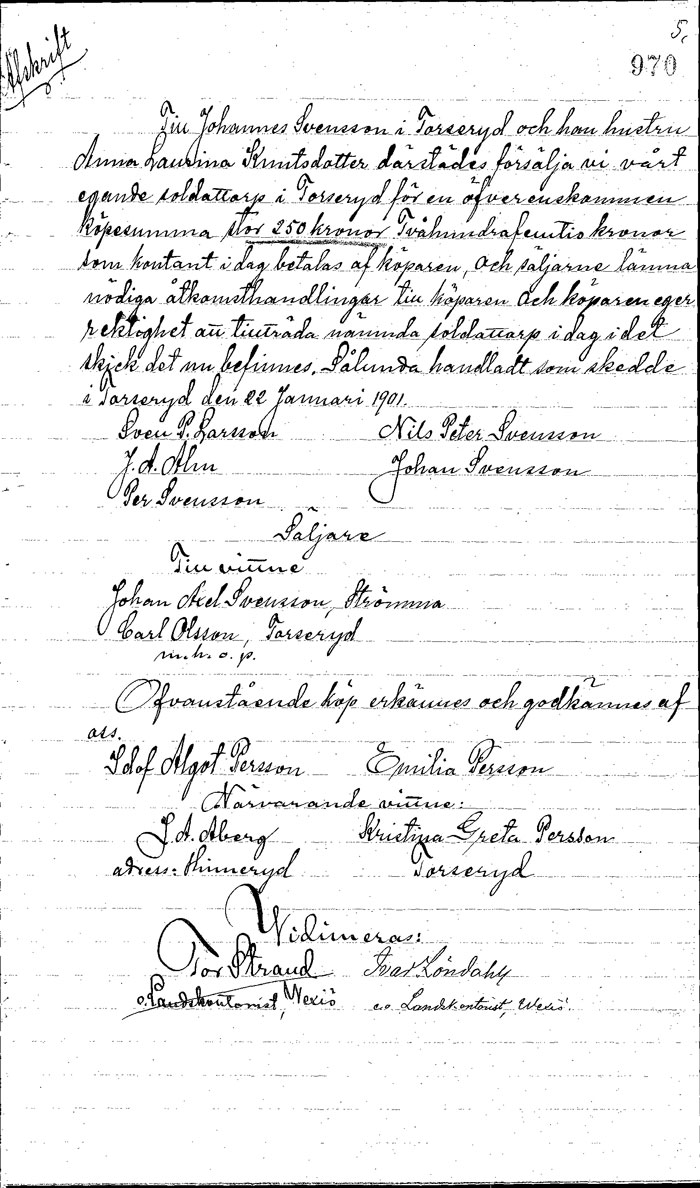 5.
970
Afskrift
Till Johannes Svensson i Torseryd och han hustru
Anna Laurina Knutsdotter därstädes försälja vi vårt
egande soldattorp i Torseryd för en öfverenskommen
köpesumma stor 250 kronor Tvåhundrafemtio kronor
som kontant i dag betalas af köparen, och säljarne lämna
nödiga åtkomsthandlingar till köparen och köparen eger
rektighet att tillträda nämnda soldattorp i dag i det
skick det nu befinnes. Sålunda handladt som skedde
i Torseryd den 22 Januari 1901.
Sven P. Larsson Nils Peter Svensson
J. A. Alm Johan Svensson
Per Svensson
Säljare
Till vittne
Johan Axel Svensson, Strömma
Carl Olsson, Torseryd
m. h. o. p.
Ofvanstående köp erkännes och godkännes af
oss.
Idof Algot Persson Emilia Persson
Närvarande vittne:
J. A. Åberg Kristina Greta Persson
adress: Hinneryd Torseryd
Vidimeras:
Tor Strand Ivar Löndahl
o. Landskontorist, Wexiö e.o. Landskontorist, Wexiö.